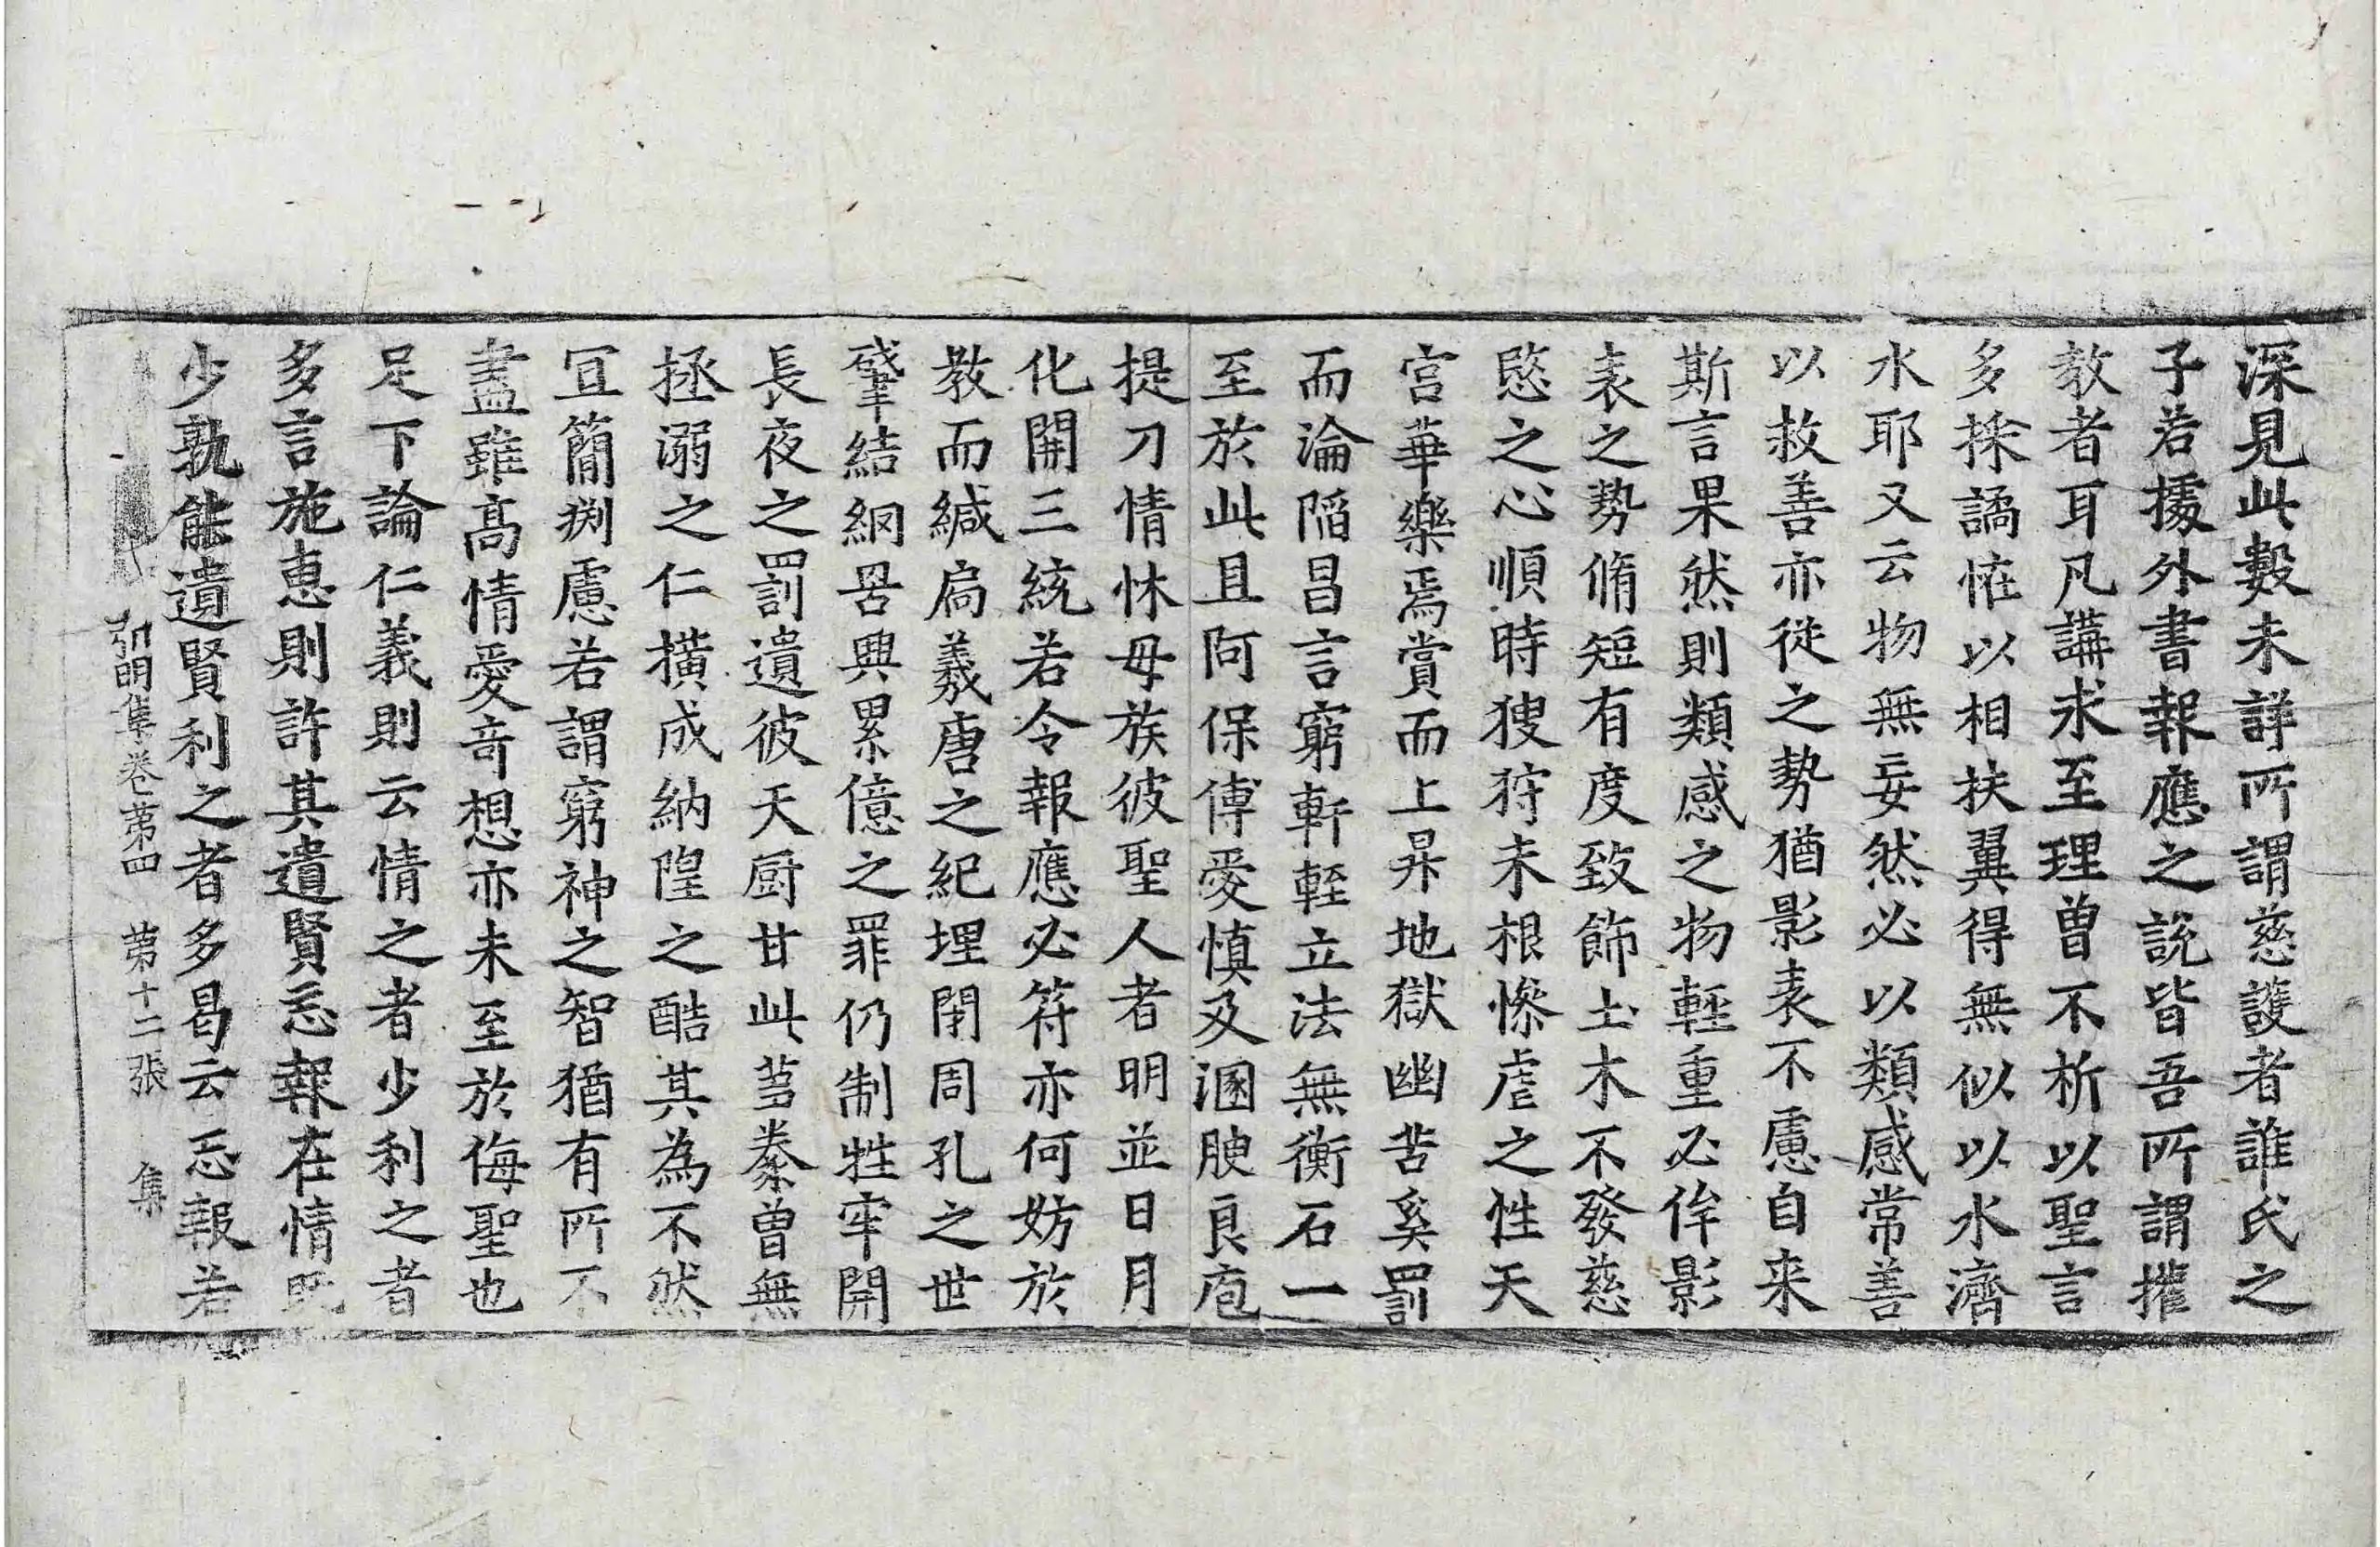 深見此數未詳所謂慈護者誰氏之
子若據外書報應之說皆吾所謂權
教者耳凡講求至理曾不析以聖言
多採譎恠以相扶翼得無似以水濟
水耶又云物無妄然必以類感常善
以救善亦從之勢猶影表不慮自来
斯言果然則類感之物輕重必侔影
表之勢脩短有度致飾土木不發慈
愍之心順時獀狩未根慘虐之性天
宮華樂焉賞而上昇地獄幽苦奚罰
而淪陷昌言窮軒輊立法無衡石一
至於此且阿保傅愛慎及溷腴良庖
提刀情怵母族彼聖人者明並日月
化開三統若令報應必符亦何妨於
教而緘扃羲唐之紀埋閉周孔之世
肇結網罟興累億之罪仍制牲牢開
長夜之罰遺彼天厨甘此芻豢曾無
拯溺之仁橫成納隍之酷其為不然
冝簡淵慮若謂窮神之智猶有所不
盡雖高情愛奇想亦未至於侮聖也
足下論仁義則云情之者少利之者
多言施惠則許其遺賢忘報在情既
少孰能遺賢利之者多曷云忘報若
弘明集卷第四　第十二張　集